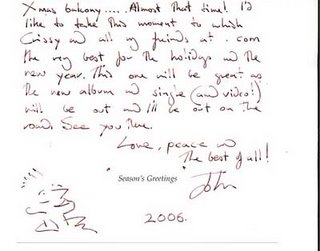 Xmas balcony.... Almost that time! I'd
like to take this moment to whish
Crissy and all my freinds at .com
the very best for the holidays and the
new year. This one will be great as
the new album and single (and video!)
will be out and I'll be out on the
road. See you there.
Love, peace and
The best of all!
John
Season's Greetings
2006.